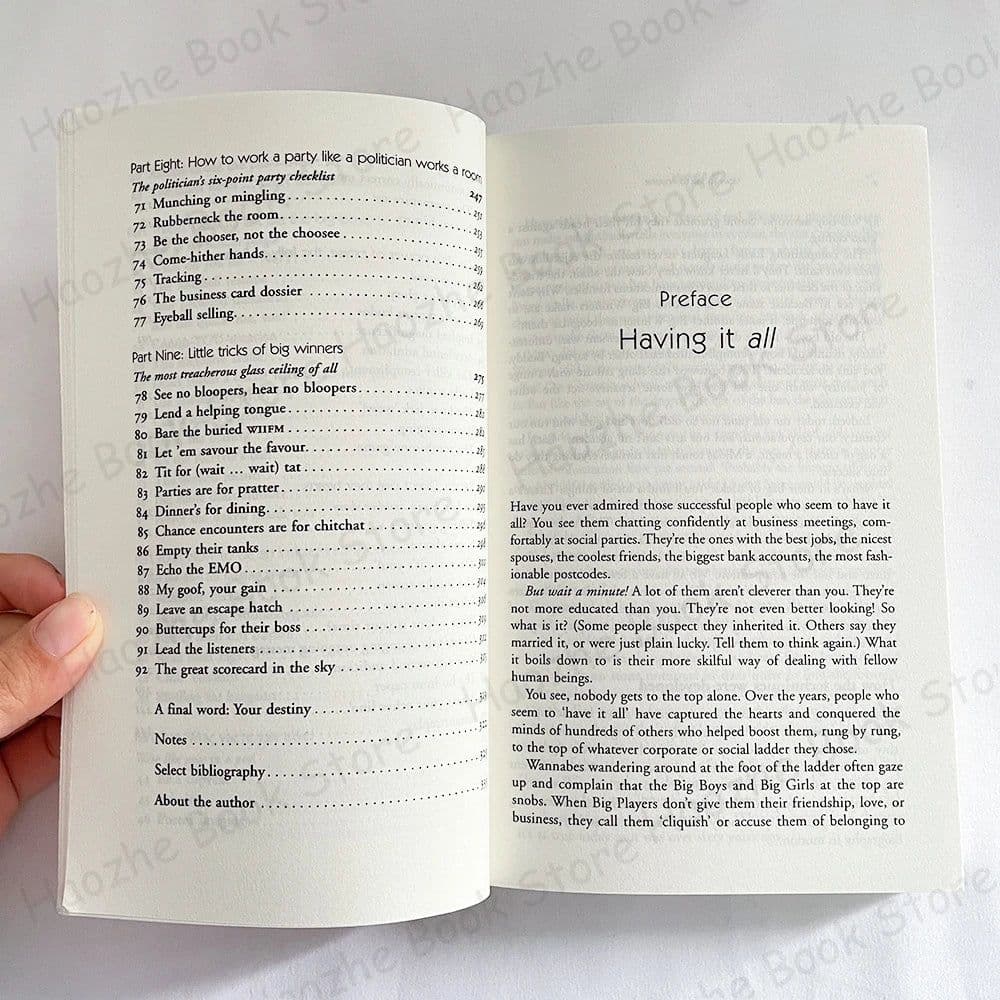 Part Eight: How to work a party like a politician works a room
The politician's six-point party checklist 247
71 Munching or mingling 251
72 Rubberneck the room 253
73 Be the chooser, not the choosee 255
74 Come-hither hands 259
75 Tracking 262
76 The business card dossier 266
77 Eyeball selling 269
Part Nine: Little tricks of big winners
The most treacherous glass ceiling of all 275
78 See no bloopers, hear no bloopers 277
79 Lend a helping tongue
80 Bare the buried WIIFM 282
81 Let 'em savour the favour.
82 Tit for (wait … wait) tat 288
83 Parties are for pratter
84 Dinner's for dining
85 Chance encounters are for chitchat
86 Empty their tanks
87 Echo the EMO
88 My goof, your gain
89 Leave an escape hatch
90 Buttercups for their boss
91 Lead the listeners
92 The great scorecard in the sky
A final word: Your destiny
Notes
Select bibliography
About the author
Preface
Having it all
Have you ever admired those successful people who seem to have it
all? You see them chatting confidently at business meetings, com-
fortably at social parties. They're the ones with the best jobs, the nicest
spouses, the coolest friends, the biggest bank accounts, the most fash-
ionable postcodes.
But wait a minute! A lot of them aren't cleverer than you. They're
not more educated than you. They're not even better looking! So
what is it? (Some people suspect they inherited it. Others say they
married it, or were just plain lucky. Tell them to think again.) What
it boils down to is their more skilful way of dealing with fellow
human beings.
You see, nobody gets to the top alone. Over the years, people who
seem to 'have it all' have captured the hearts and conquered the
minds of hundreds of others who helped boost them, rung by rung,
to the top of whatever corporate or social ladder they chose.
Wannabes wandering around at the foot of the ladder often gaze
up and complain that the Big Boys and Big Girls at the top are
snobs. When Big Players don't give them their friendship, love, or
business, they call them 'cliquish' or accuse them of belonging to
Haozhe Book Store